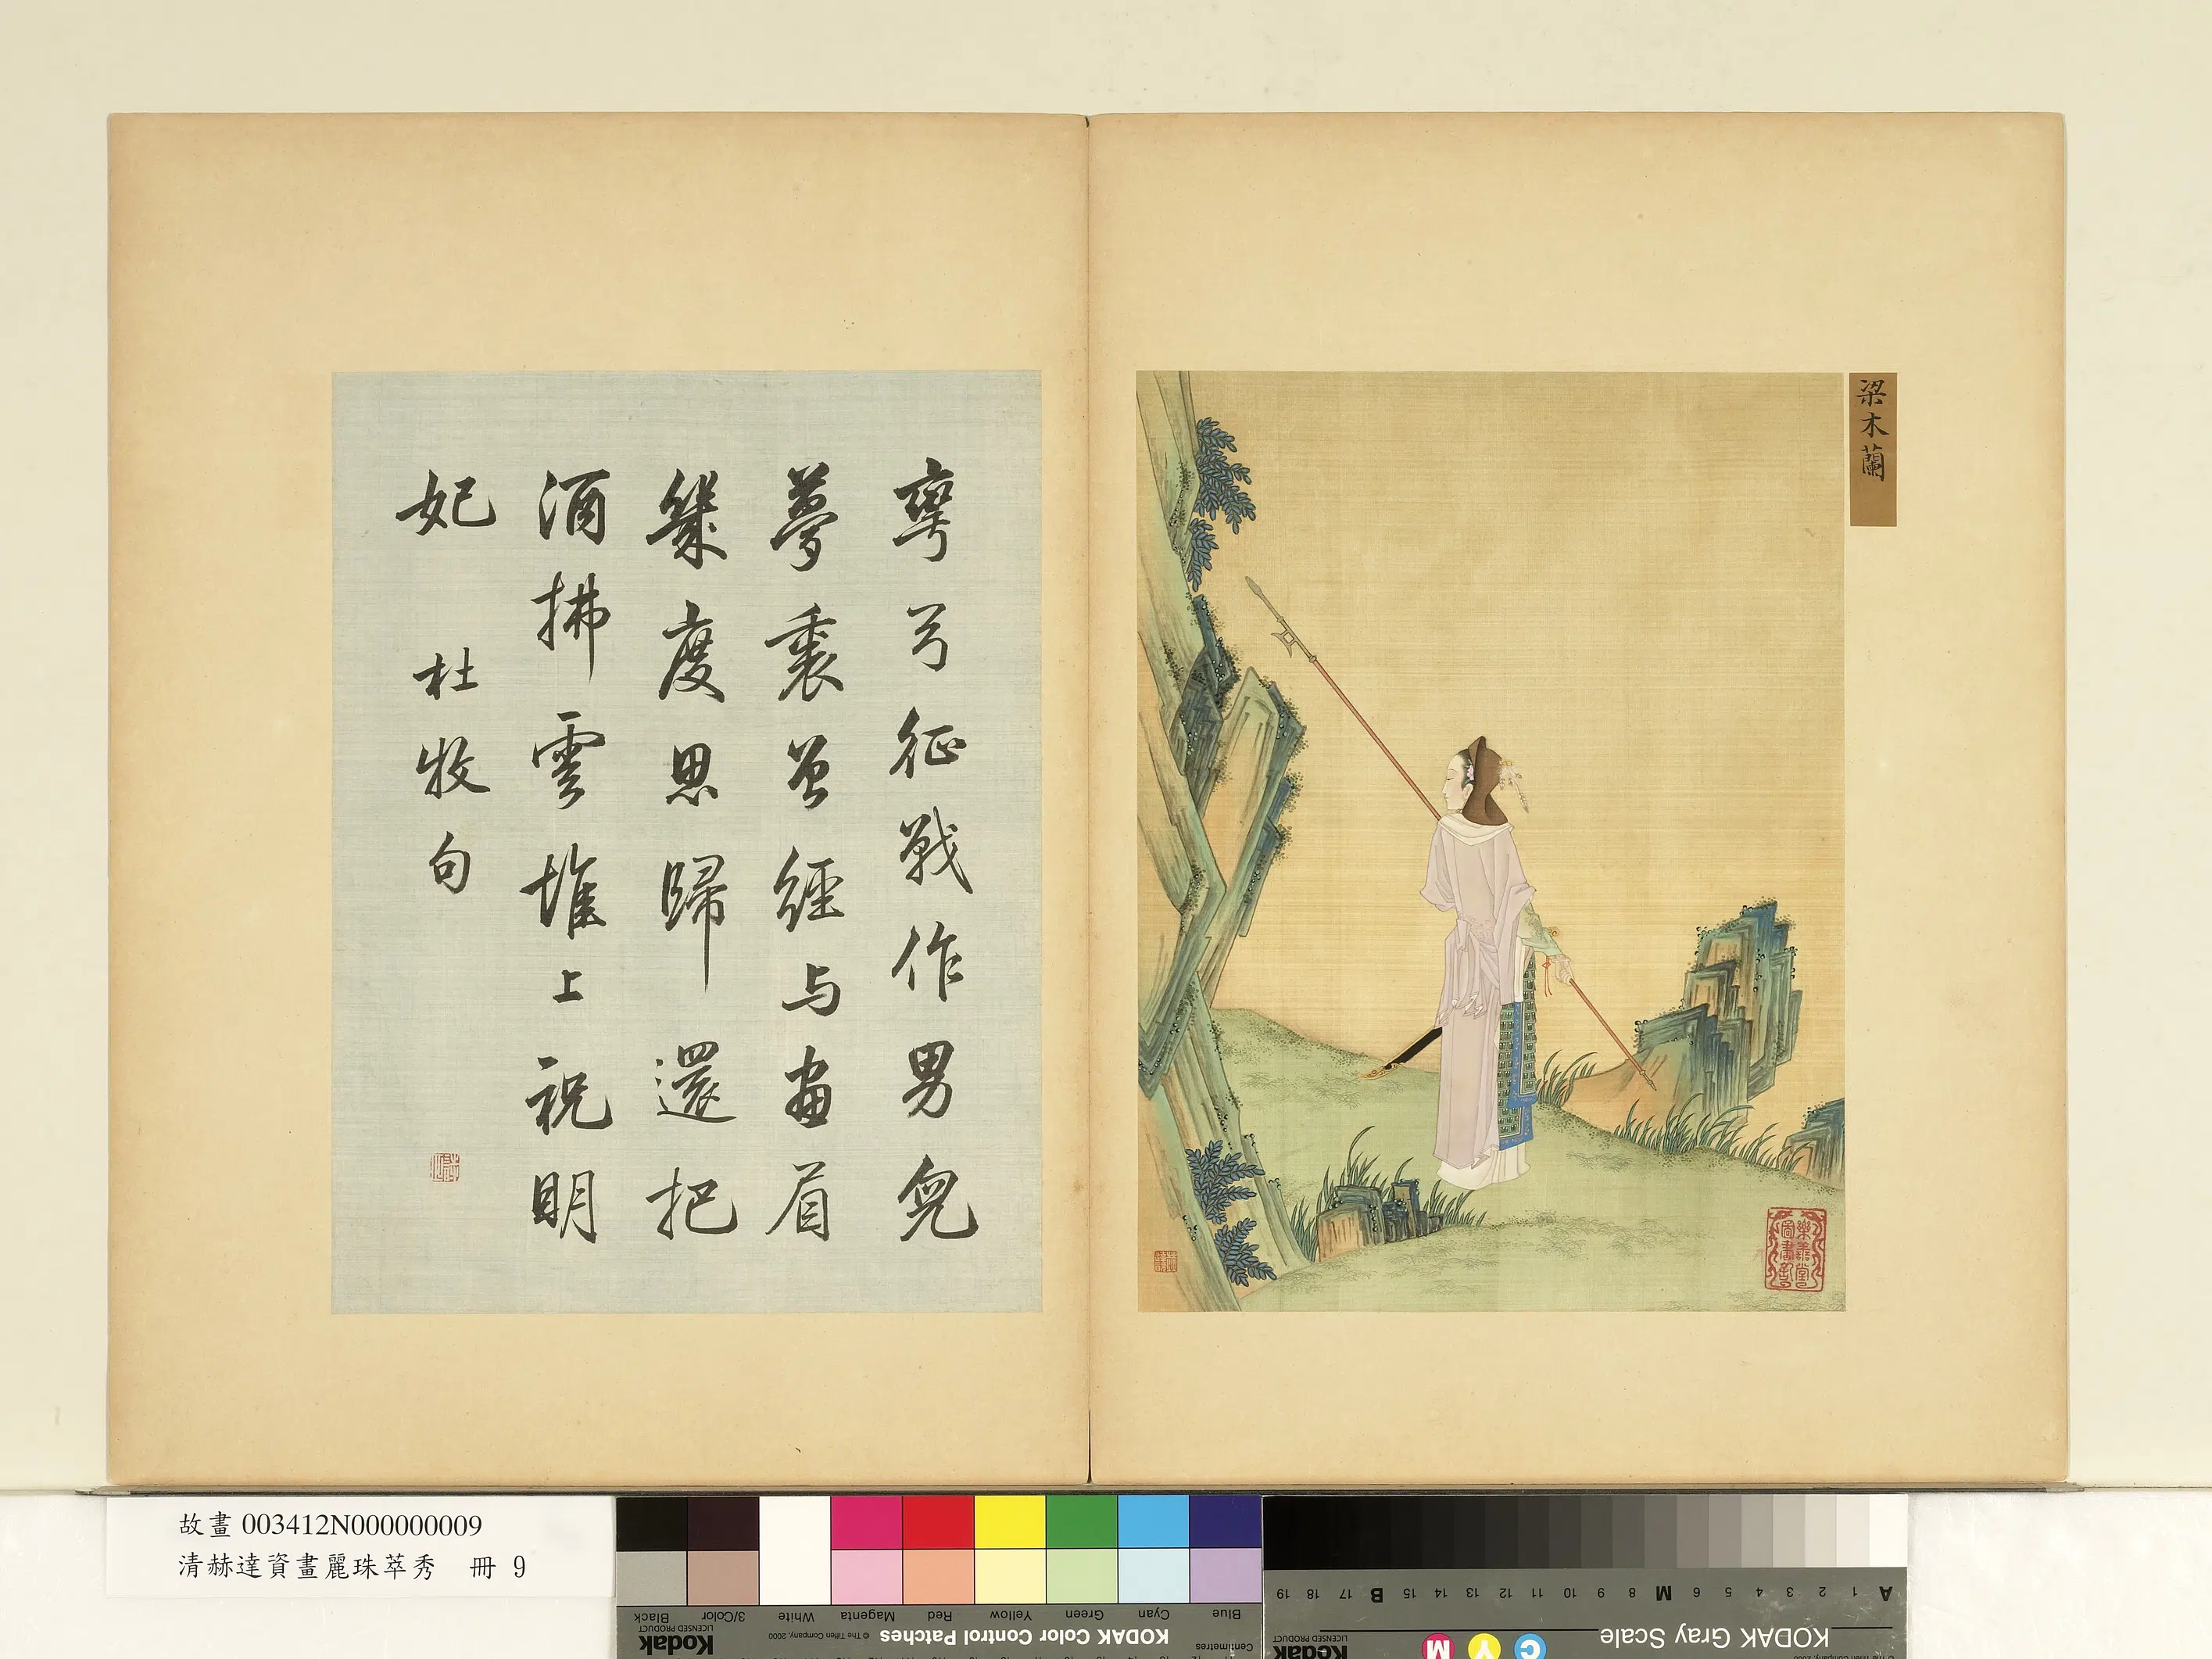 梁木蘭
彎弓征戰作男兒
夢裏曾經与畫眉
幾度思歸還把
酒拂雲堆上祝明
妃 杜牧句
樂善堂
圖書記
故畫 003412N000000009
清赫達資畫麗珠萃秀 冊 9
Blue Cyan Green Yellow Red Magenta White 3/Color Black
Centimetres
KODAK Color Control Patches © The Tiffen Company, 2000 Kodak
LICENSED PRODUCT
A 1 2 3 4 5 6 M 8 9 10 11 12 13 14 15 B 17 18 19
KODAK Gray Scale
C Y M Kodak
LICENSED PRODUCT